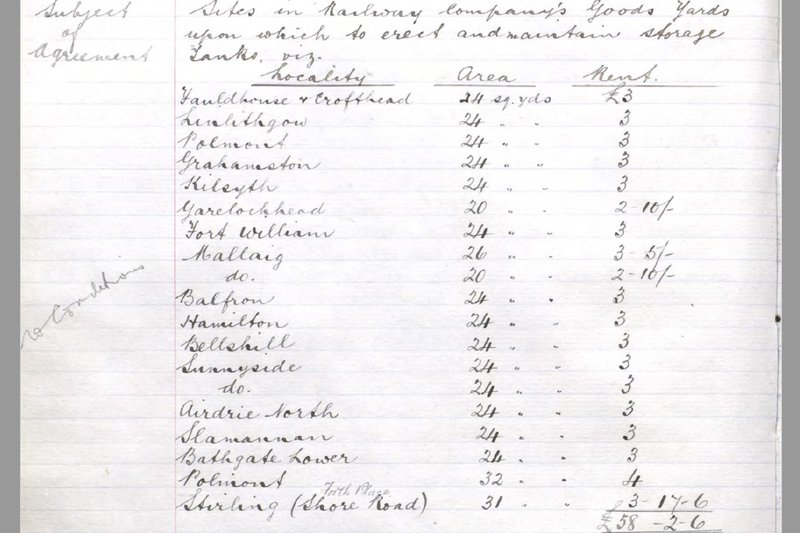 Subject of Agreement
Sites in Railway Company's Goods Yards
upon which to erect and maintain storage
Tanks, viz.
Locality Area Rent.
Fauldhouse & Crofthead 24 sq. yds £3
Linlithgow 24 " " 3
Polmont 24 " " 3
Grahamston 24 " " 3
Kilsyth 24 " " 3
Garelochhead 20 " " 2-10/-
Fort William 24 " " 3
Mallaig 26 " " 3-5/-
do. 20 " " 2-10/-
Balfron 24 " " 3
Hamilton 24 " " 3
Bellshill 24 " " 3
Sunnyside 24 " " 3
do. 24 " " 3
Airdrie North 24 " " 3
Slamannan 24 " " 3
Bathgate Lower 24 " " 3
Polmont 32 " " 4
Forth Place
Stirling (Shore Road) 31 " " 3-17-6
£58-2-6
Conditions